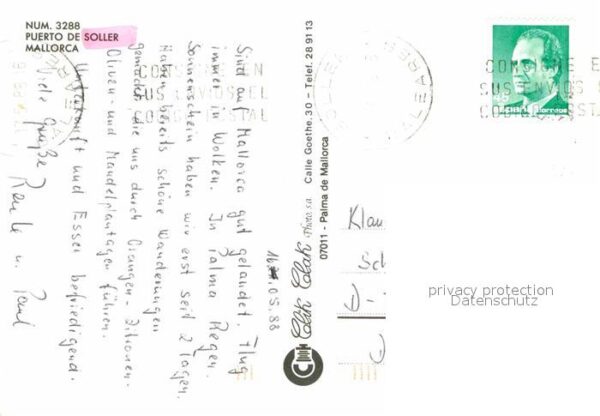 NUM. 3288
PUERTO DE SOLLER
MALLORCA
16.05.88
Sind auf Mallorca gut gelandet. Flug
immer in Wolken. In Palma Regen.
Sonnenschein haben wir erst seit 2 Tagen.
Haben bereits schöne Wanderungen
gemacht, die uns durch Orangen-, Zitronen-
Oliven- und Mandelplantagen führen.
Unterkunft und Essen befriedigend.
Viele Grüße
u. Paul
Clik Clak Photo s.a. Calle Goethe, 30 - Telef. 28 91 13
07011 - Palma de Mallorca
SOLLER
BALEARES
CONSIGNE EN
SUS ENVIOS EL
CODIGO POSTAL
BALEARES
CONSIGNE E
SUS ENVIOS
España
correos
Klau
Sc
D-
privacy protection
Datenschutz